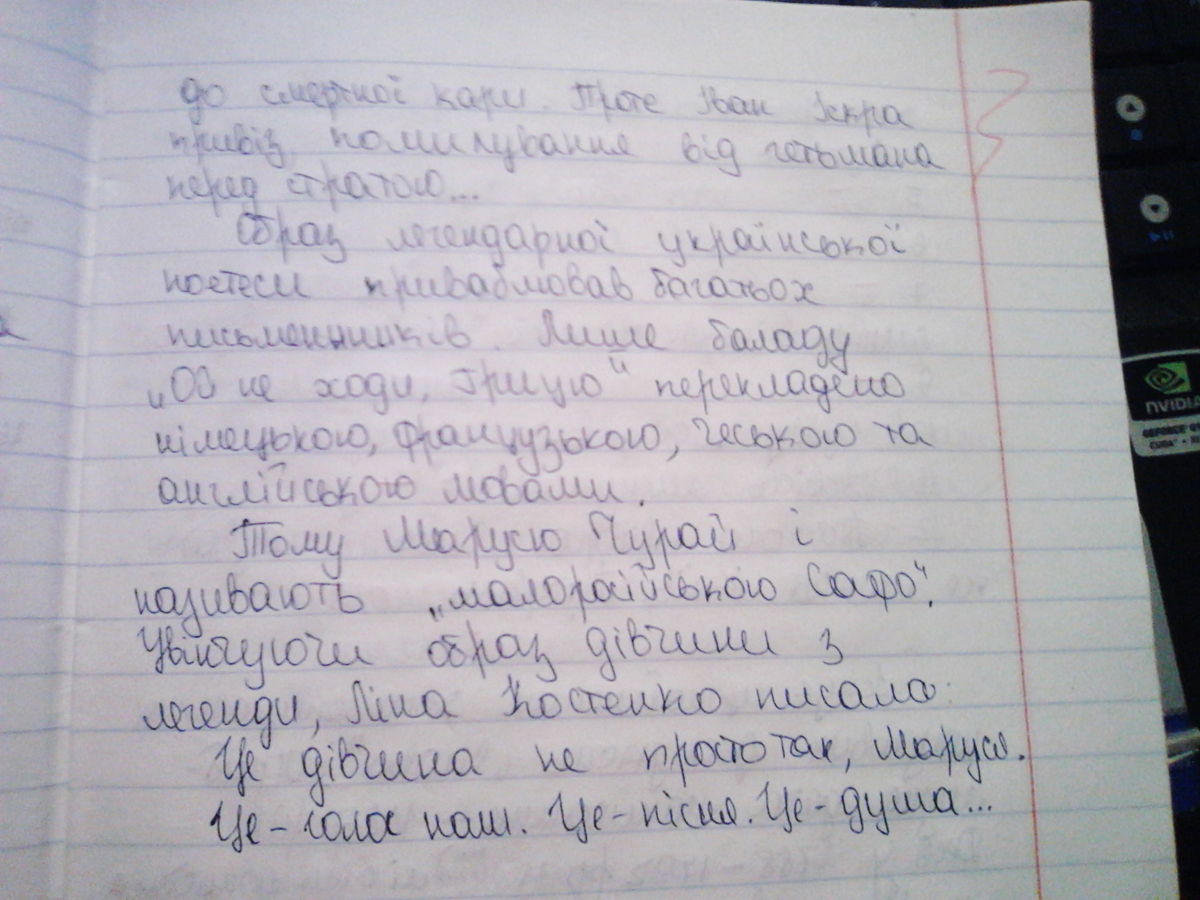 до смертної кари. Проте Іван Іскра
привіз помилування від гетьмана
перед стратою...
Образ легендарної української
поетеси приваблював багатьох
письменників. Лише баладу
„Ой не ходи, Грицю" перекладено
німецькою, французькою, чеською та
англійською мовами.
Тому Марусю Чурай і
називають „малоросійською Сафо".
Увінчуючи образ дівчини з
легенди, Ліна Костенко писала:
Це дівчина не просто так, Маруся.
Це - голос наш. Це - пісня. Це - душа...
NVIDIA
GEFORCE
CUDA